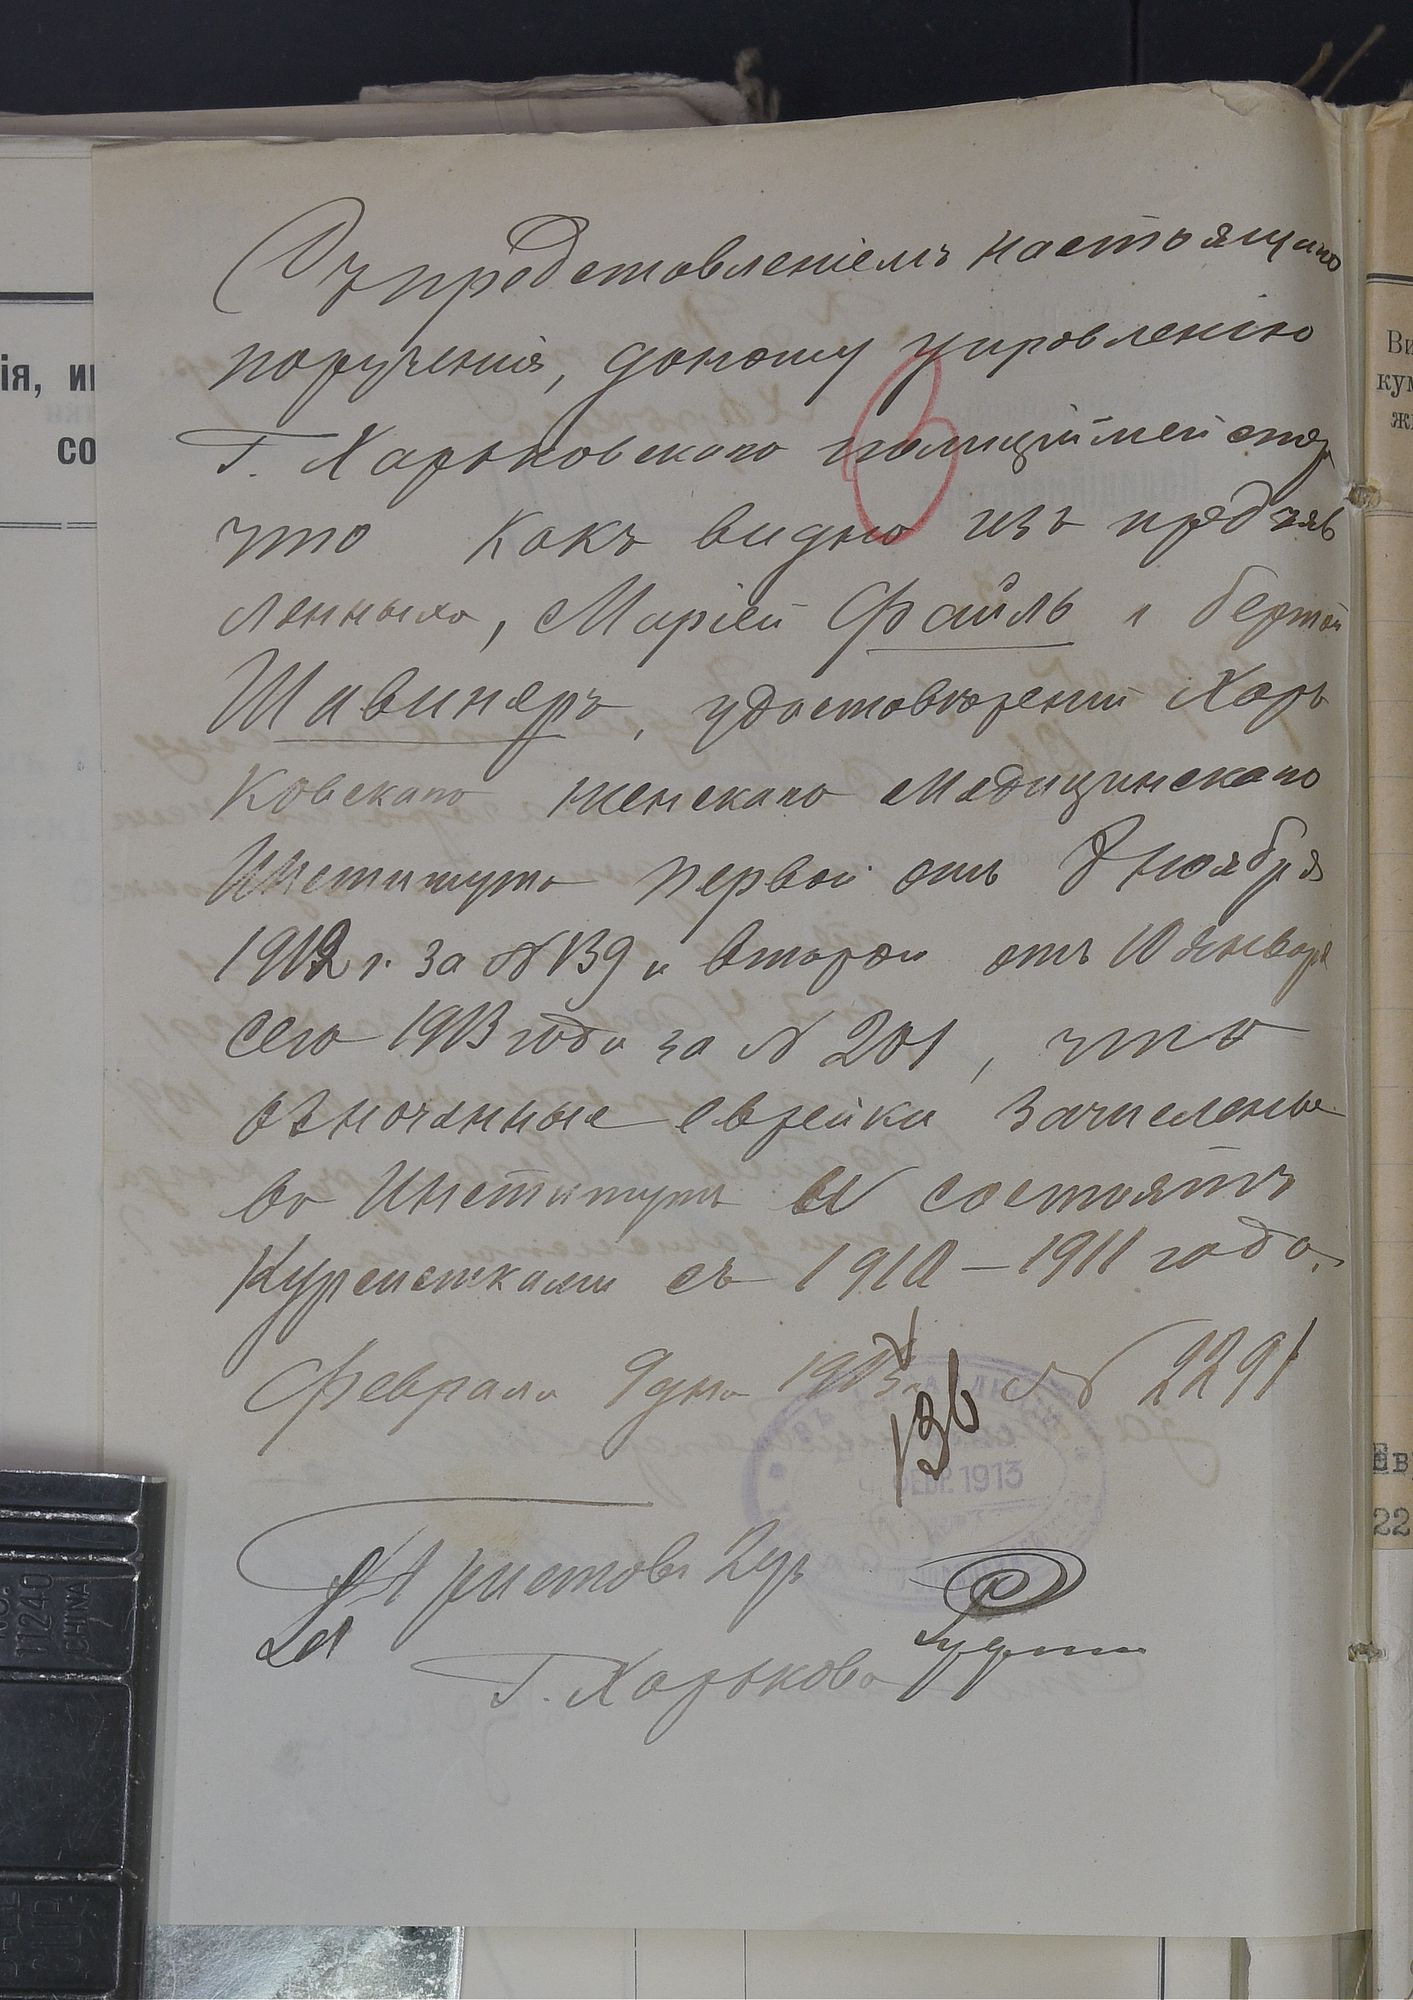 Съ представленіемъ настоящаго
порученія, доношу управленію
Г. Харьковскаго полиціймейстера
что какъ видно изъ предъяв
ленныхъ, Маріей Файль и Бертой
Шавинеръ, удостовѣреній Харь
ковскаго женскаго Медицинскаго
Института первой отъ 8 ноября
1912 г. за № 139 и второй отъ 10 января
сего 1913 года за № 201, что
означенные еврейки зачислены
въ Институтъ и состоятъ
Курсистками съ 1910-1911 года.
Февраля 9 дня 1913 г. № 2291
136
ФЕВР. 1913
Приставъ 2 уч
Г. Харькова
ія, и
со
Ви
кум
жи
Ев
22
11240
CHINA